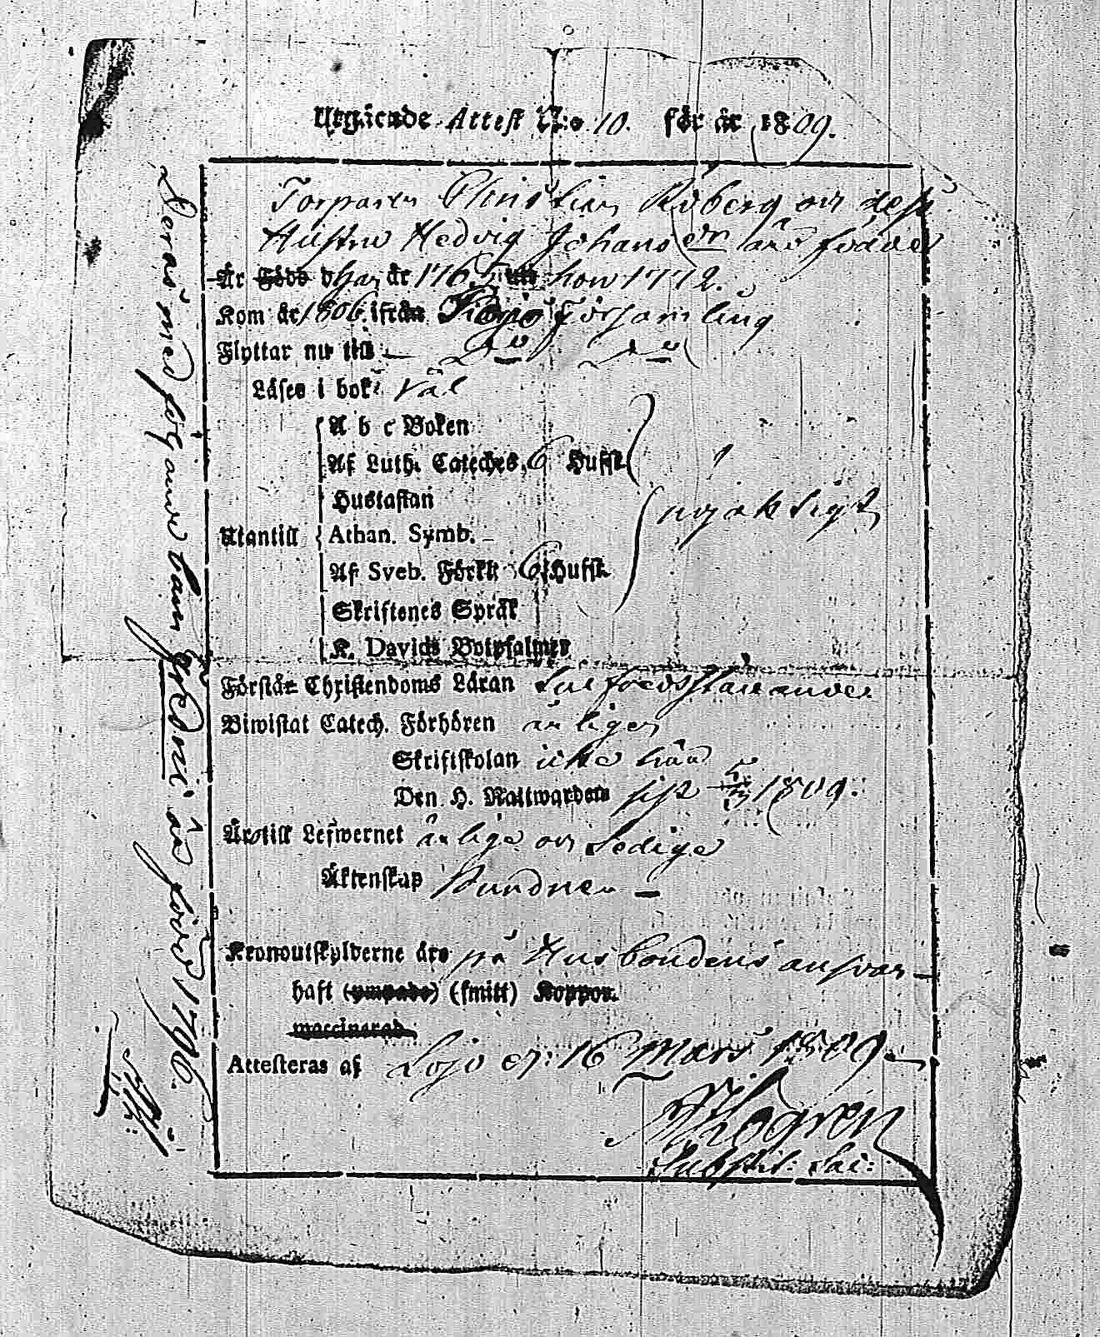 Utgående Attest N:o 10. för år 1809.
Torparen Christian Röberg och dess
Hustru Hedvig Johans dr äro födde
Är Född han år 176 hon 1772.
Kom år 1806. ifrån Församling
Flyttar nu till Do Do
Läser i bok: väl
A b c Boken
Af Luth. Cateches. 6 Hufst.
Hustaflan
Utantill Athan. Symb.
nöjaktigt
Af Sveb. Förkl: 6 Hufst.
Skriftenes Språk
K. Davids Botpsalmer
Förstår Christendoms Läran
Biwistat Catech. Förhören årligen
Skriftskolan icke här
Den H. Nattwarden sist 1809:
Är till Lefwernet ärlige och Sedige
Äktenskap bundne
Kronoutskylderne äro på Husbondens answar
haft (ympade) (smitt) Koppor.
waccinerad
Attesteras af Lojo d. 16 Mars 1809.
Substit: Sac:
Deras medföljande barn är född 1796.